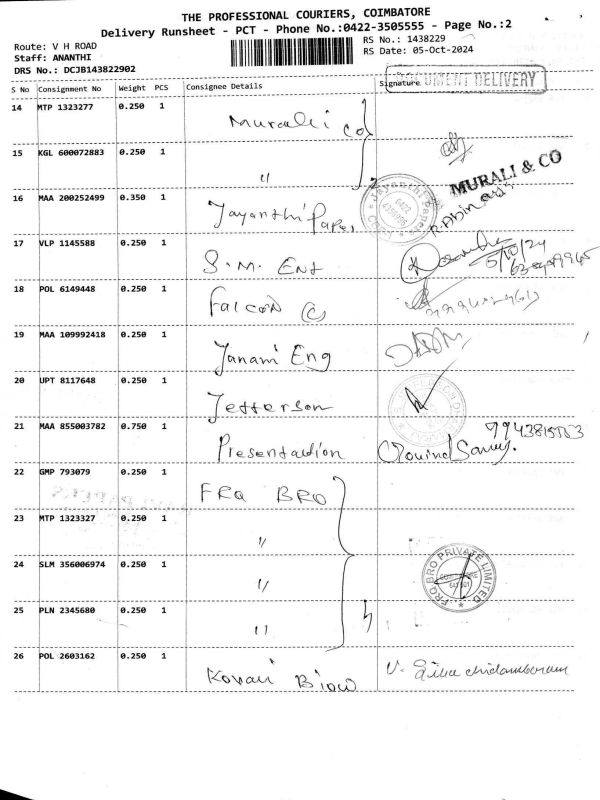 THE PROFESSIONAL COURIERS, COIMBATORE
Delivery Runsheet - PCT - Phone No.:0422-3505555 - Page No.:2
Route: V H ROAD
RS No.: 1438229
Staff: ANANTHI
RS Date: 05-Oct-2024
DRS No.: DCJB143822902
DOCUMENT DELIVERY
S No Consignment No Weight PCS Consignee Details Signature
14 MTP 1323277 0.250 1 Murali Co
15 KGL 600072883 0.250 1 "
MURALI & CO
16 MAA 200252499 0.350 1 Jayanthi Paper
R. Abinaya
17 VLP 1145588 0.250 1 S.M. Ent
5/10/24
18 POL 6149448 0.250 1 Falcon C
19 MAA 109992418 0.250 1 Janani Eng
20 UPT 8117648 0.250 1 Jefferson
21 MAA 855003782 0.750 1 Presentation
22 GMP 793079 0.250 1 FRQ BRO
23 MTP 1323327 0.250 1 "
24 SLM 356006974 0.250 1 "
FRQ BRO PRIVATE LIMITED
25 PLN 2345680 0.250 1 "
26 POL 2603162 0.250 1 Kovai